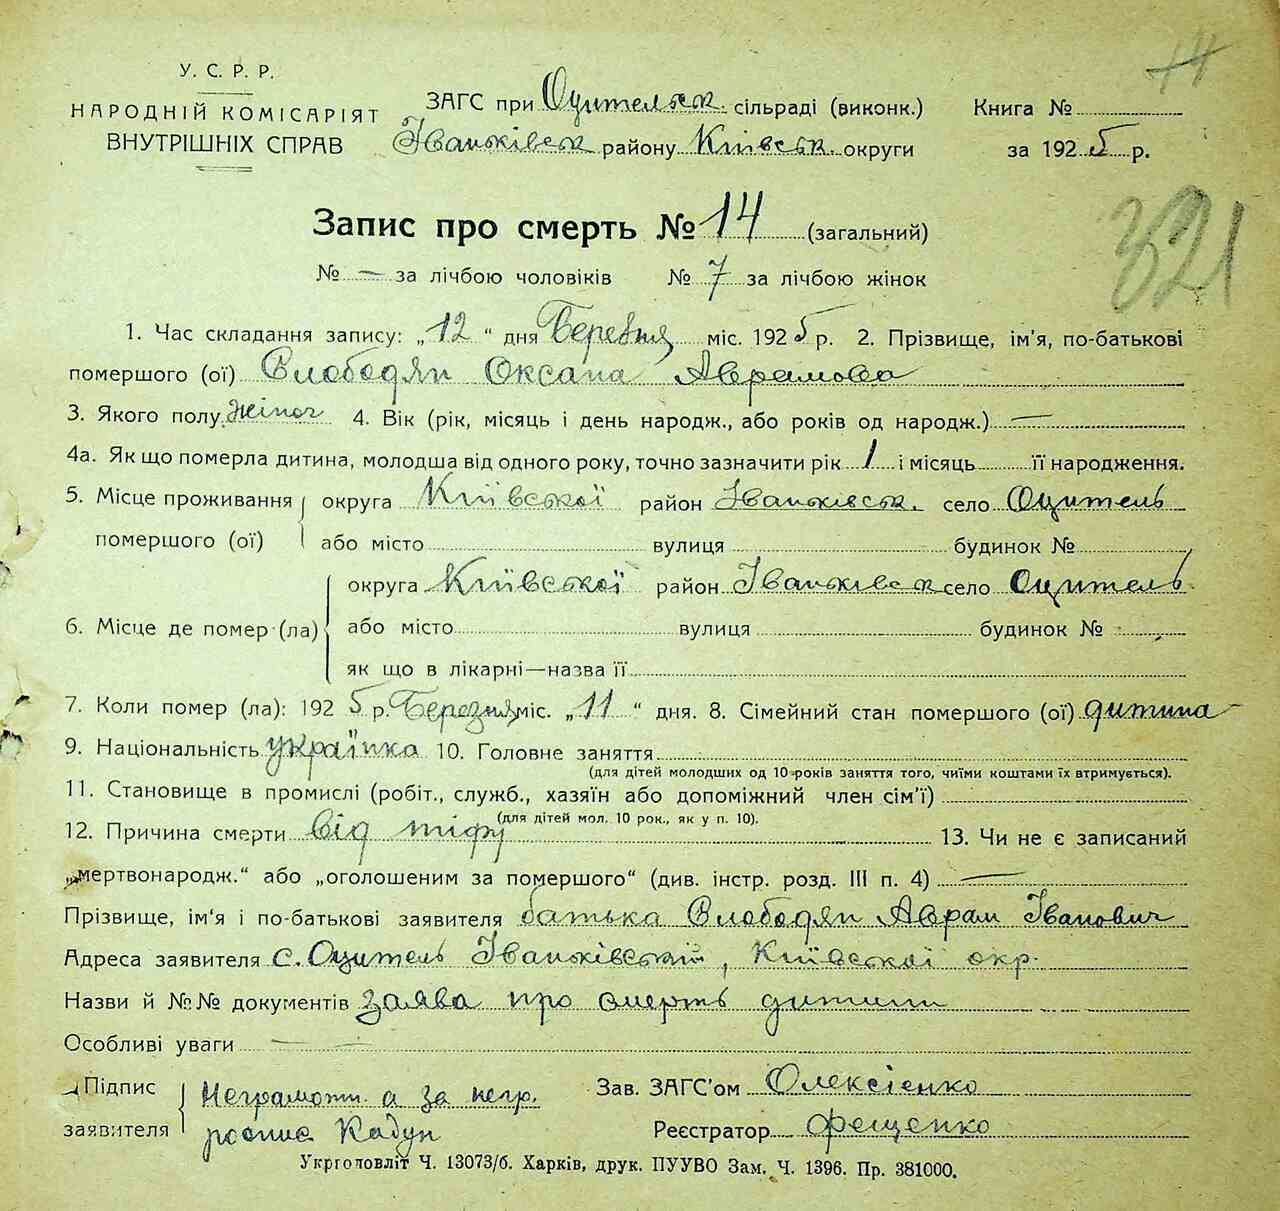 14
У. С. Р. Р.
НАРОДНІЙ КОМІСАРІЯТ
ВНУТРІШНІХ СПРАВ
ЗАГС при Оцительск. сільраді (виконк.)
Іваньківськ району Київськ. округи
Книга №
за 1925 р.
321
Запис про смерть № 14 (загальний)
№ — за лічбою чоловіків № 7 за лічбою жінок
1. Час складання запису: „12“ дня Березня міс. 1925 р. 2. Прізвище, ім'я, по-батькові
помершого (ої) Слободян Оксана Аврамова
3. Якого полу жіноч 4. Вік (рік, місяць і день народж., або років од народж.) —
4а. Як що померла дитина, молодша від одного року, точно зазначити рік 1 і місяць її народження.
5. Місце проживання округа Київської район Іваньківськ. село Оцитель
помершого (ої) або місто вулиця будинок №
округа Київської район Іваньківськ село Оцитель
6. Місце де помер (ла) або місто вулиця будинок №
як що в лікарні—назва її
7. Коли помер (ла): 1925 р. Березня міс. „11“ дня. 8. Сімейний стан помершого (ої) дитина
9. Національність українка 10. Головне заняття
(для дітей молодших од 10 років заняття того, чиїми коштами їх втримується).
11. Становище в промислі (робіт., служб., хазяїн або допоміжний член сім'ї)
(для дітей мол. 10 рок., як у п. 10).
12. Причина смерти від тіфу 13. Чи не є записаний
„мертвонародж.“ або „оголошеним за помершого“ (див. інстр. розд. III п. 4) —
Прізвище, ім'я і по-батькові заявителя батька Слободян Аврам Іванович
Адреса заявителя с. Оцитель Іваньківській, Київської окр.
Назви й №№ документів заява про смерть дитини
Особливі уваги — —
Підпис Неграмотн. а за негр.
заявителя роспис Кадун
Зав. ЗАГС'ом Олексієнко
Реєстратор Фещенко
Укрголовліт Ч. 13073/б. Харків, друк. ПУУВО Зам. Ч. 1396. Пр. 381000.